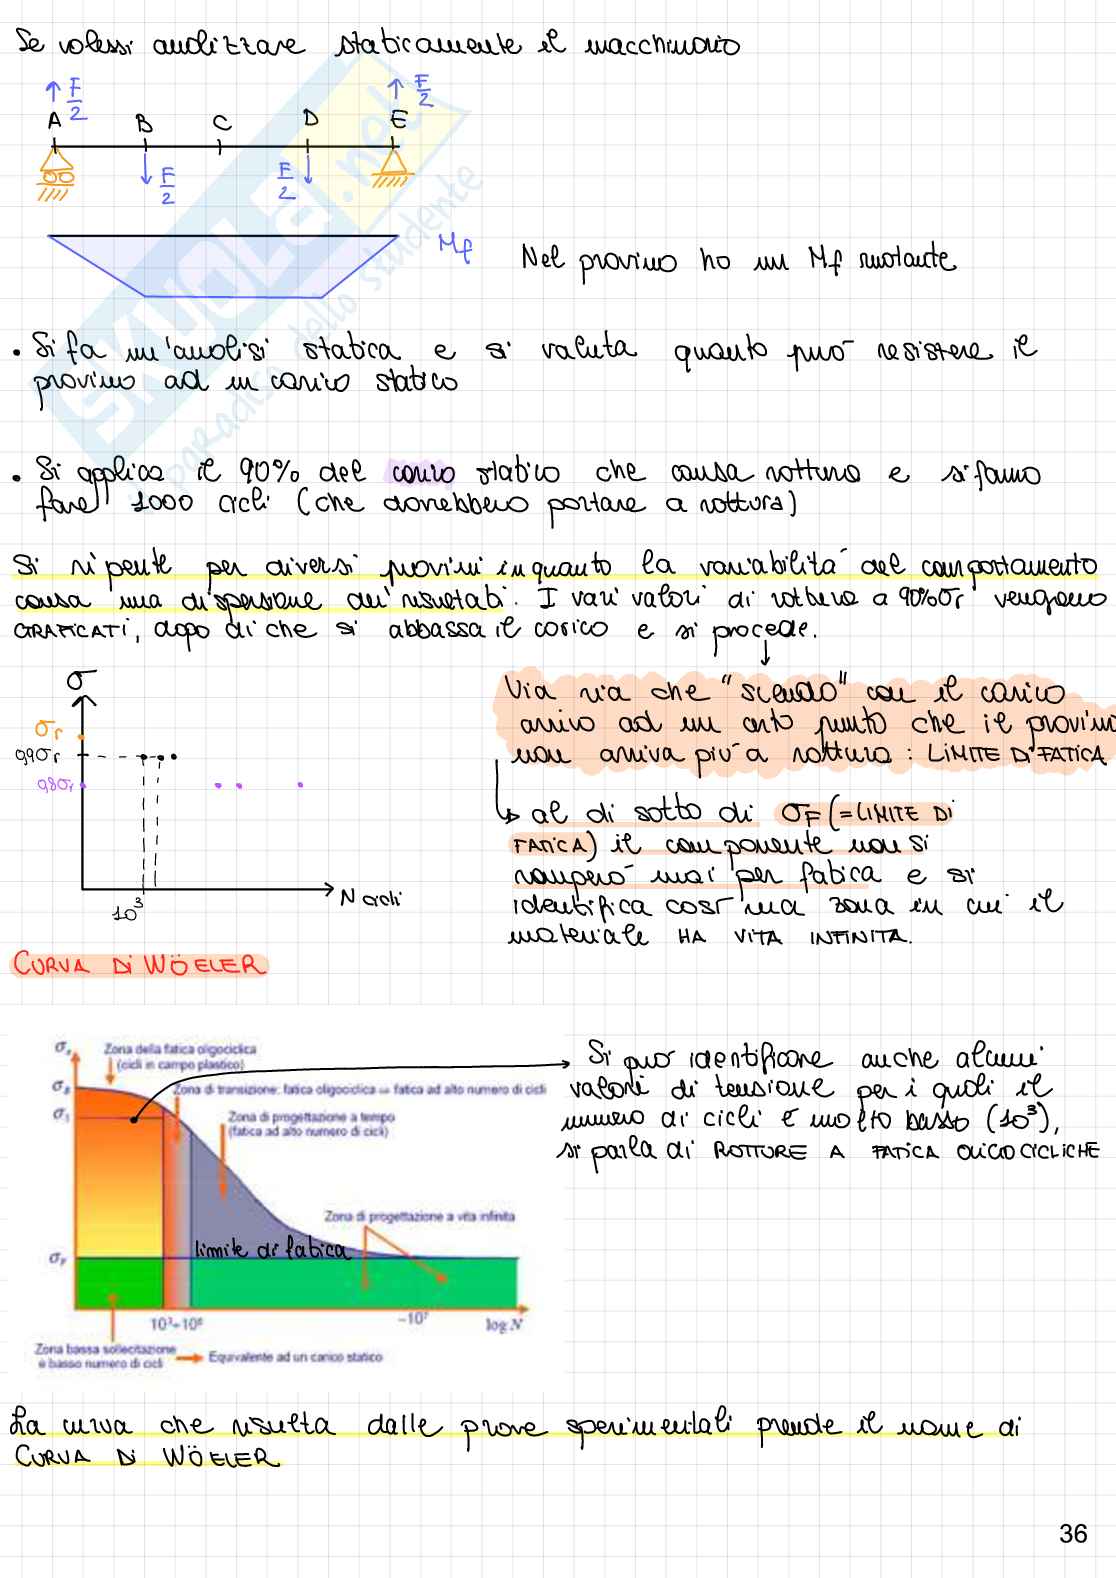 Se volessi analizzare staticamente il macchinario
F/2
F/2
A
B
C
D
E
F/2
F/2
Mf
Nel provino ho un Mf ruotante
SKUOLA.net
paradiso dello studente
• Si fa un'analisi statica e si valuta quanto può resistere il
provino ad un carico statico
• Si applica il 90% del carico statico che causa rottura e si fanno
fare 1000 cicli (che dovrebbero portare a rottura)
Si ripente per diversi provini in quanto la variabilità del comportamento
causa una dispersione dei risultati. I vari valori di rottura a 90%σr vengono
GRAFICATI, dopo di che si abbassa il carico e si procede.
σ
σr
0,9σr
0,8σr
10³
N cicli
Via via che "scendo" con il carico
arrivo ad un certo punto che il provino
non arriva più a rottura: LIMITE DI FATICA
al di sotto di σF (=LIMITE DI
FATICA) il componente non si
romperà mai per fatica e si
identifica così una zona in cui il
materiale HA VITA INFINITA.
CURVA DI WÖELER
Zona della fatica oligociclica
(cicli in campo plastico)
Zona di transizione: fatica oligociclica — fatica ad alto numero di cicli
Zona di progettazione a tempo
(fatica ad alto numero di cicli)
Zona di progettazione a vita infinita
limite di fatica
~10⁷
log N
Zona bassa sollecitazione
e basso numero di cicli
Equivalente ad un carico statico
Si può identificare anche alcuni
valori di tensione per i quali il
numero di cicli è molto basso (10³),
si parla di ROTTURE A FATICA OLIGOCICLICHE
La curva che risulta dalle prove sperimentali prende il nome di
CURVA DI WÖELER
36